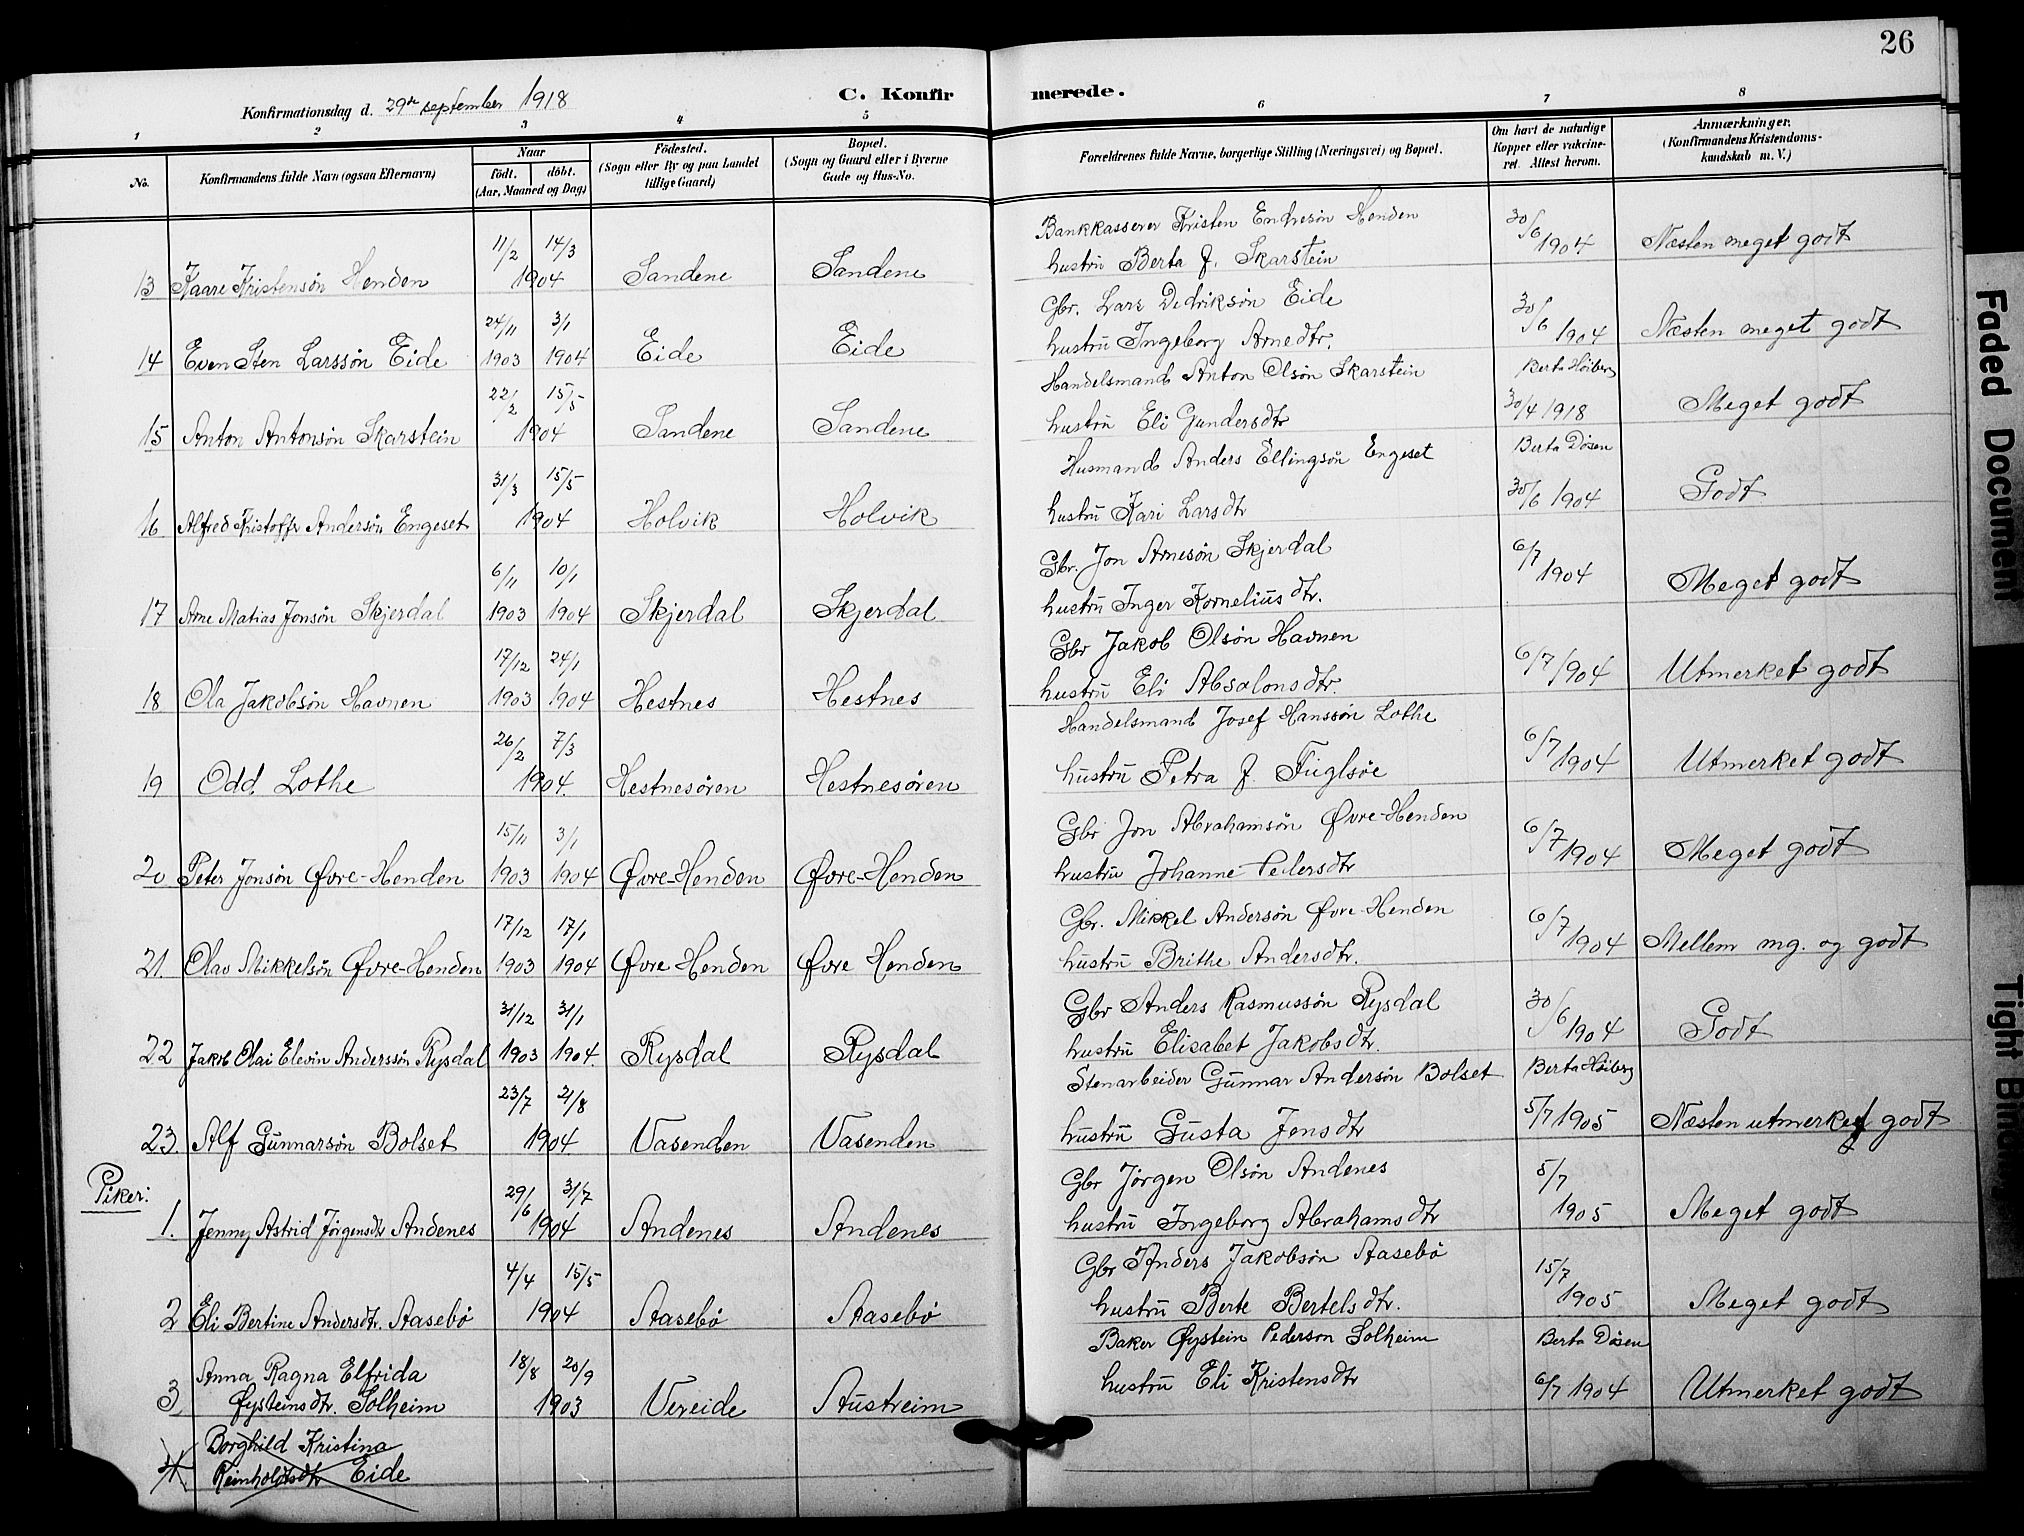 26
Konfirmationsdag d. 29de september 1918
C. Konfirmerede.
1 2 3 4 5 6 7 8
No. Konfirmandens fulde Navn (ogsaa Efternavn)
Naar
födt. döbt.
(Aar, Maaned og Dag)
Födested.
(Sogn eller By og paa Landet
tillige Gaard)
Bopæl.
(Sogn og Gaard eller i Byerne
Gade og Hus-No.
Forældrenes fulde Navne, borgerlige Stilling (Næringsvei) og Bopæl.
Om havt de naturlige
Kopper eller vakcine-
ret. Attest herom.
Anmærkninger.
(Konfirmandens Kristendoms-
kundskab m. V.)
11/2 14/3 Bankkasserer Kristen Endresön Henden 30/6 1904 Næsten meget godt
13 Kaare Kristensön Henden 1904 Sandene Sandene hustru Berta J. Skarstein
24/11 3/1 Gbr. Lars Dedriksön Eide 30/6 1904 Næsten meget godt
14 Even Sten Larssön Eide 1903 1904 Eide Eide hustru Ingeborg Arnedtr.
22/2 15/5 Handelsmand Anton Olsön Skarstein Berta Höiberg
15 Anton Antonsön Skarstein 1904 Sandene Sandene hustru Eli Gundersdtr 30/4 1918 Meget godt
31/3 15/5 Husmand Anders Ellingsön Engeset Berta Dösen
16 Alfred Kristoffer Andersön Engeset 1904 Holvik Holvik hustru Kari Larsdtr 30/6 1904 Godt
6/11 10/1 Gbr. Jon Arnesön Skjerdal 6/7 1904 Meget godt
17 Arne Matias Jonsön Skjerdal 1903 1904 Skjerdal Skjerdal hustru Inger Korneliusdtr.
17/12 24/1 Gbr Jakob Olsön Havnen 6/7 1904 Utmerket godt
18 Ola Jakobsön Havnen 1903 1904 Hestnes Hestnes hustru Eli Absalonsdtr.
26/2 7/3 Handelsmand Josef Hanssön Lothe 6/7 1904 Utmerket godt
19 Odd Lothe 1904. Hestnesören Hestnesören hustru Petra J. Fuglsöe
15/11 3/1 Gbr Jon Abrahamsön Øvre-Henden 6/7 1904 Meget godt
20 Peter Jonsön Øvre-Henden 1903 1904 Øvre-Henden Øvre-Henden hustru Johanne Pedersdtr
17/12 17/1 Gbr. Mikkel Andersön Øvre-Henden 6/7 1904 Mellem mg. og godt
21. Olav Mikkelsön Øvre-Henden 1903 1904 Øvre Henden Øvre Henden hustru Brithe Andersdtr.
31/12 31/1 Gbr Anders Rasmussön Rysdal 30/6 1904 Godt
22 Jakob Olai Elevin Anderssön Rysdal 1903 1904. Rysdal Rysdal hustru Elisabet Jakobsdtr.
23/7 21/8 Stenarbeider Gunnar Andersön Bolset Berta Höiberg
23. Alf Gunnarsön Bolset 1904 Vasenden Vasenden hustru Gusta Jensdtr 5/7 1905 Næsten utmerket godt
Piker:
29/6 31/7 Gbr Jörgen Olsön Andenes 5/7 1905 Meget godt
1. Jenny Astrid Jörgensdtr Andenes 1904 Andenes Andenes hustru Ingeborg Abrahamsdtr
4/4 15/5 Gbr Anders Jakobsön Aasebö 15/7 1905 Meget godt
2 Eli Bertine Andersdtr. Aasebö 1904 Aasebö Aasebö hustru Berte Bertelsdtr.
Anna Ragna Elfrida 18/8 20/9 Baker Øystein Pederson Solheim Berta Dösen
3, Øysteinsdtr. Solheim 1903 Vereide Austreim hustru Eli Kristensdtr 6/7 1904 Utmerket godt
Borghild Kristina
4 Reinholdtsdtr Eide
Faded Document
Tight Bindi